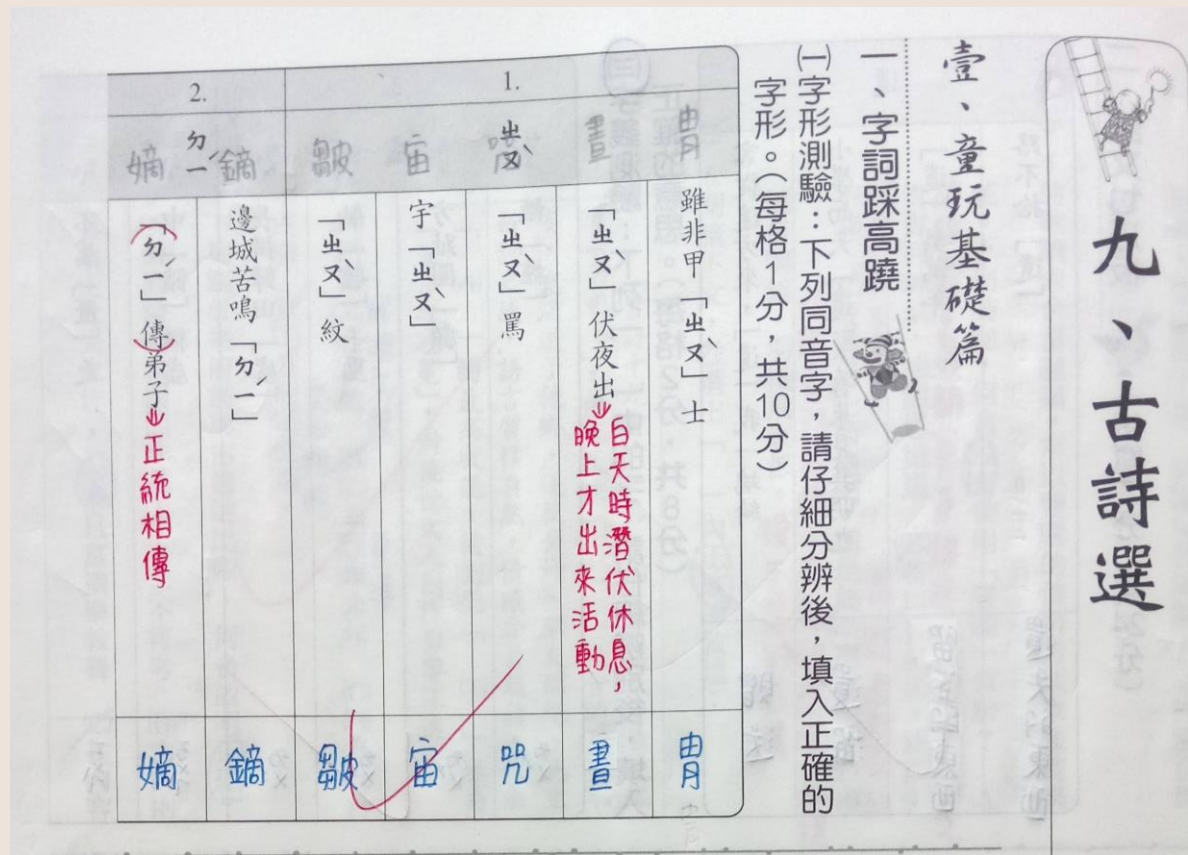 九、古詩選
壹、童玩基礎篇
一、字詞踩高蹺
㈠字形測驗：下列同音字，請仔細分辨後，填入正確的
字形。（每格1分，共10分）
1.
ㄓㄡˋ
冑
晝
咒
宙
皺
雖非甲「ㄓㄡˋ」士
冑
「ㄓㄡˋ」伏夜出⇒白天時潛伏休息，
晚上才出來活動
晝
「ㄓㄡˋ」罵
咒
宇「ㄓㄡˋ」
宙
「ㄓㄡˋ」紋
皺
2.
ㄉㄧˊ
鏑
嫡
邊城苦鳴「ㄉㄧˊ」
鏑
「ㄉㄧˊ」傳弟子⇒正統相傳
嫡